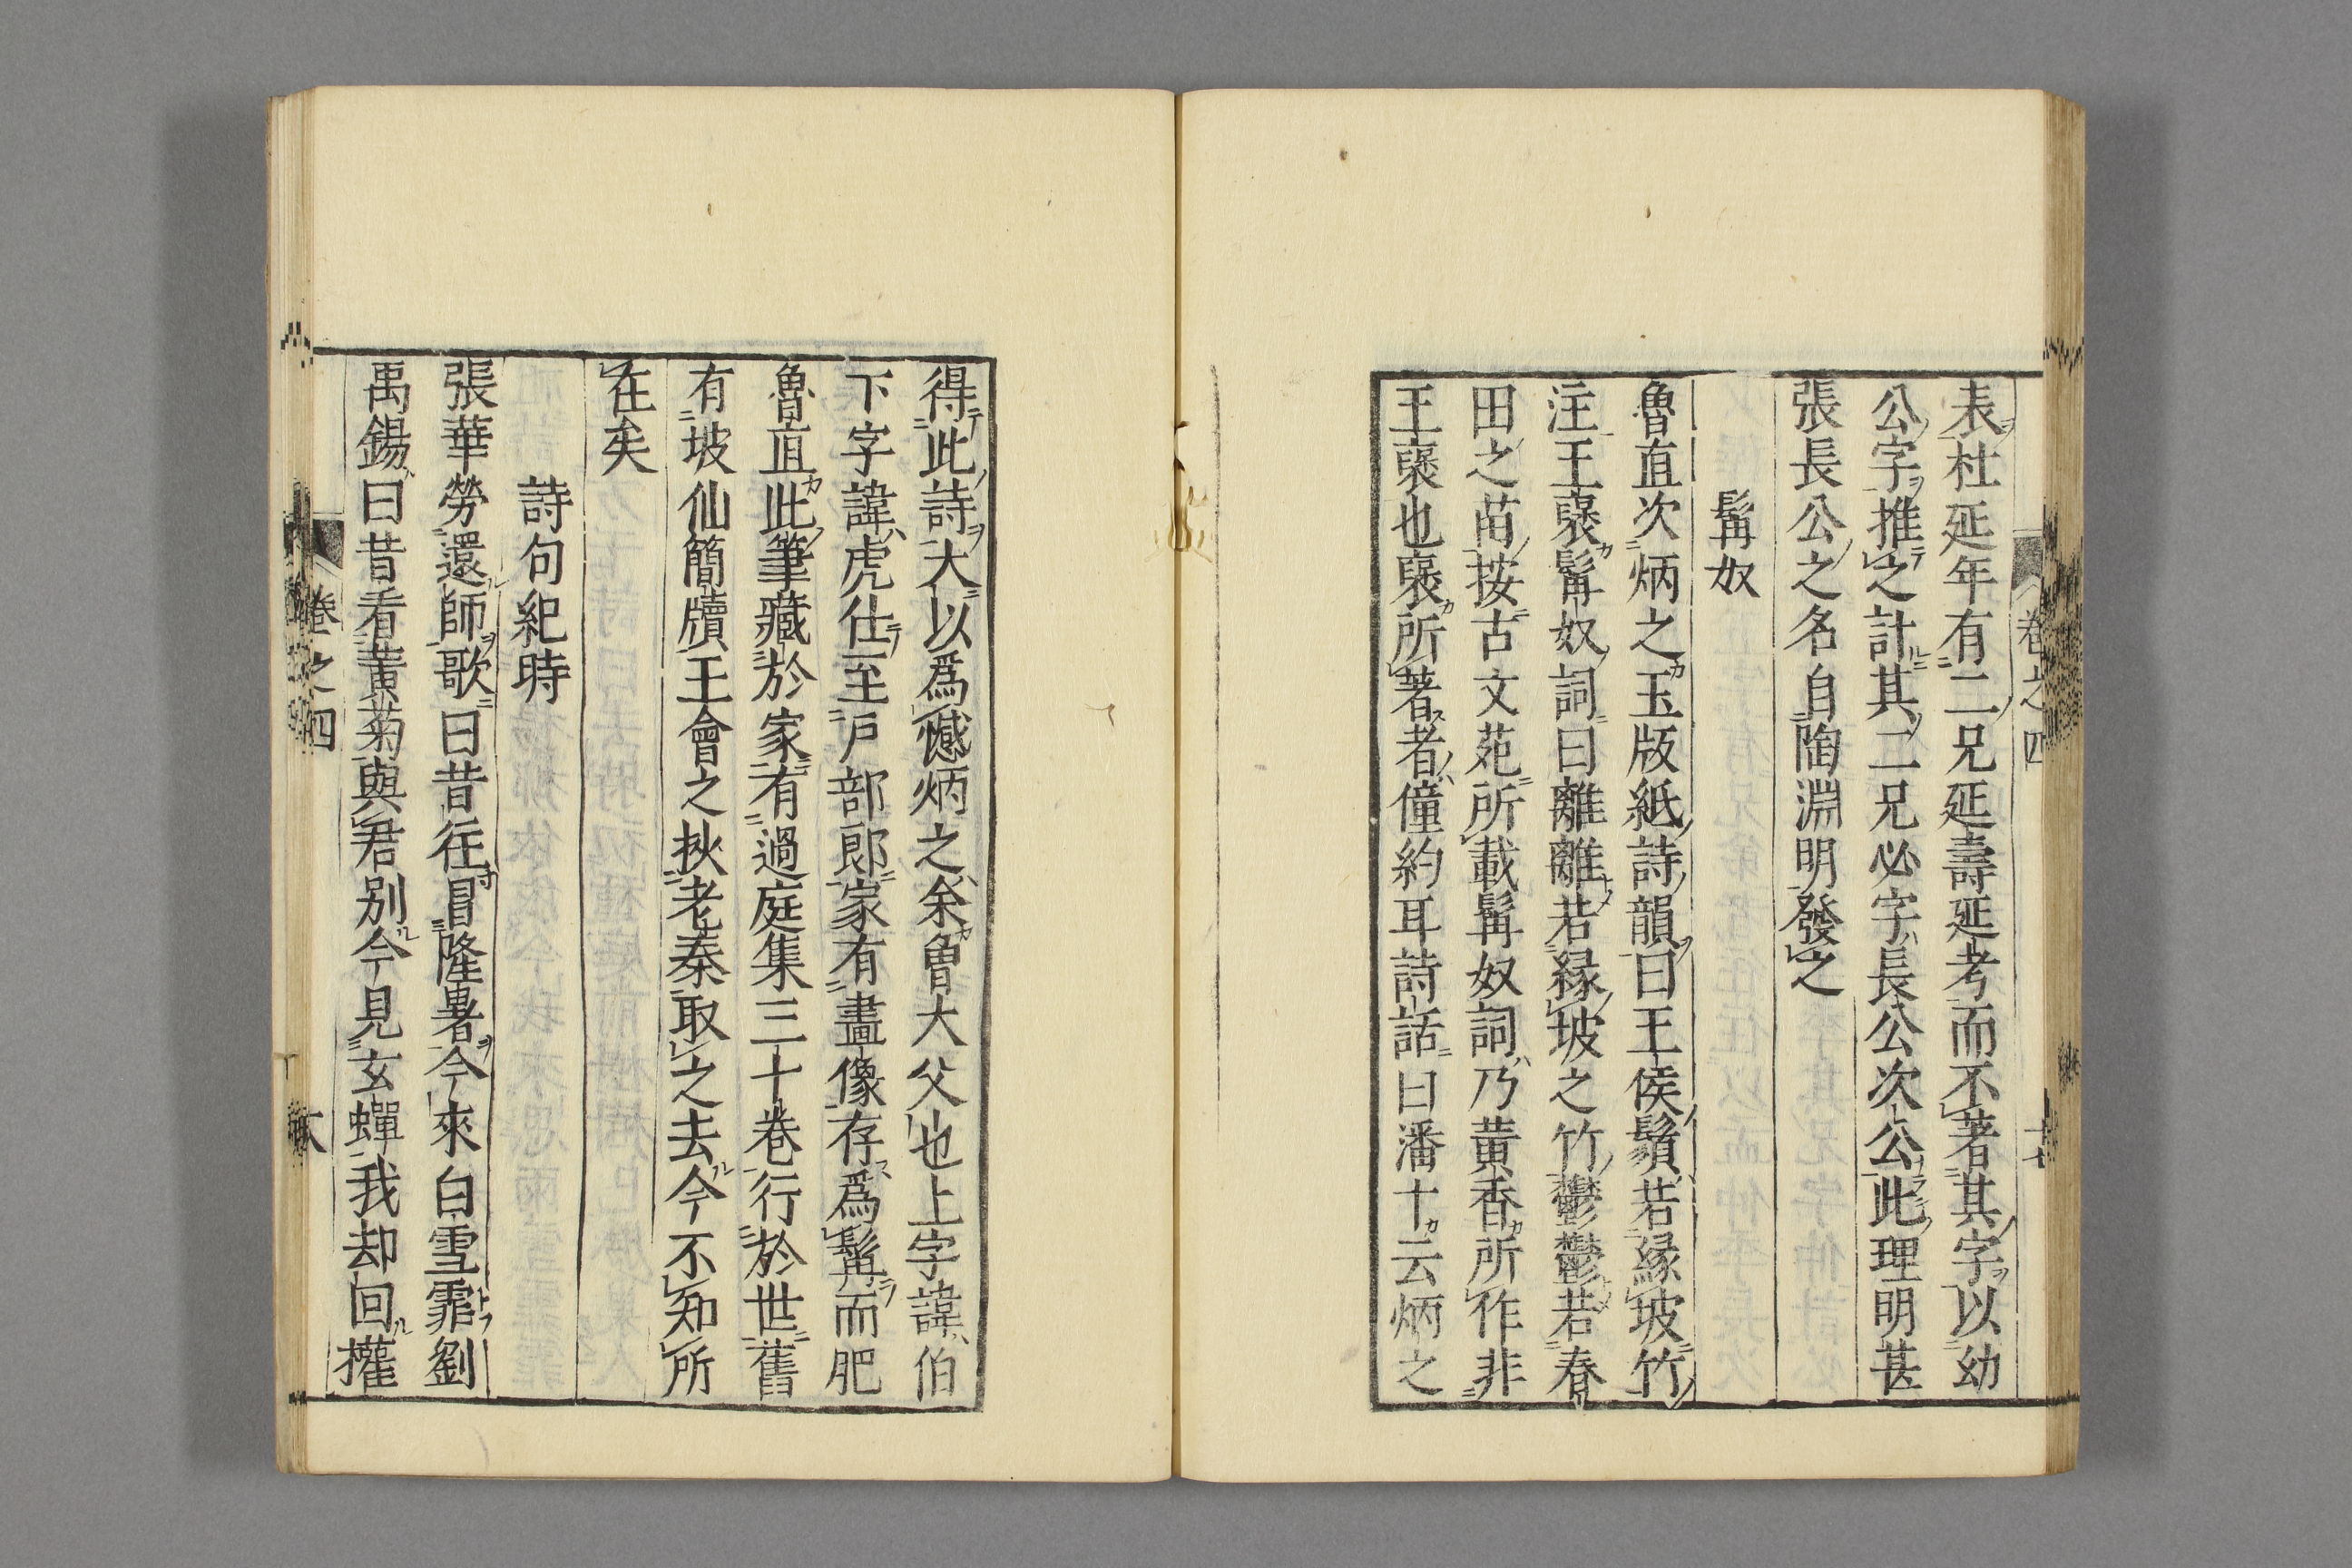 卷之四
表杜延年有二兄延壽延考而不著其字以幼
公字推之計其二兄必字長公次公此理明甚
張長公之名自陶淵明發之
髯奴
魯直次炳之玉版紙詩韻曰王侯鬚若緣坡竹
注王襃髯奴詞曰離離若緣坡之竹鬱鬱若春
田之苗按古文苑所載髯奴詞乃黄香所作非
王襃也襃所著者僮約耳詩話曰潘十云炳之
得此詩大以爲憾炳之余曾大父也上字諱伯
下字諱虎仕至戸部郎家有畫像存爲髯而肥
魯直此筆藏於家有過庭集三十卷行於世舊
有坡仙簡牘王會之挾老秦取之去今不知所
在矣
詩句紀時
張華勞還師歌曰昔往冒隆暑今來白雪霏劉
禹錫曰昔看黄菊與君別今見玄蟬我却回權
卷之四